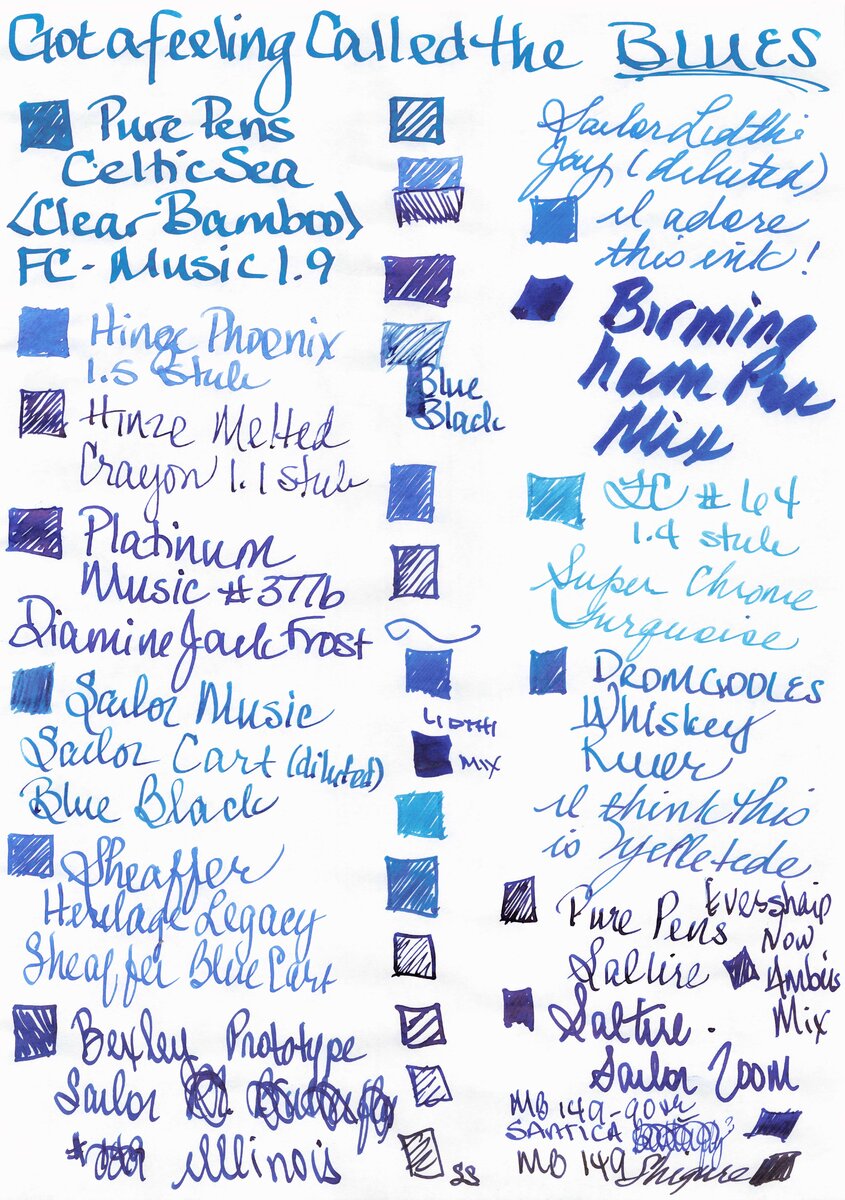 Got a feeling Called the BLUES
Pure Pens
Celtic Sea
(Clear Bamboo)
FC - Music 1.9
Hinze Phoenix
1.5 stub
Hinze Melted
Crayon 1.1 stub
Platinum
Music #3776
Diamine Jack Frost
Sailor Music
Sailor Cart (diluted)
Blue Black
Sheaffer
Heritage Legacy
Sheaffer Blue Cart
Bexley Prototype
Sailor
Illinois
Blue
Black
LIDTHI
MIX
SS
Sailor Lidthi
Jay (diluted)
I adore
this ink!
Birming
ham Pen
Mix
FC #64
1.4 stub
Super Chrome
Turquoise
DROMGOOLES
Whiskey
River
I think this
is
Pure Pens
Saltire
Eversharp
Now
Ambús
Mix
Saltire.
Sailor Zoom
MB 149-90
SANTICA
MB 149 Shigure